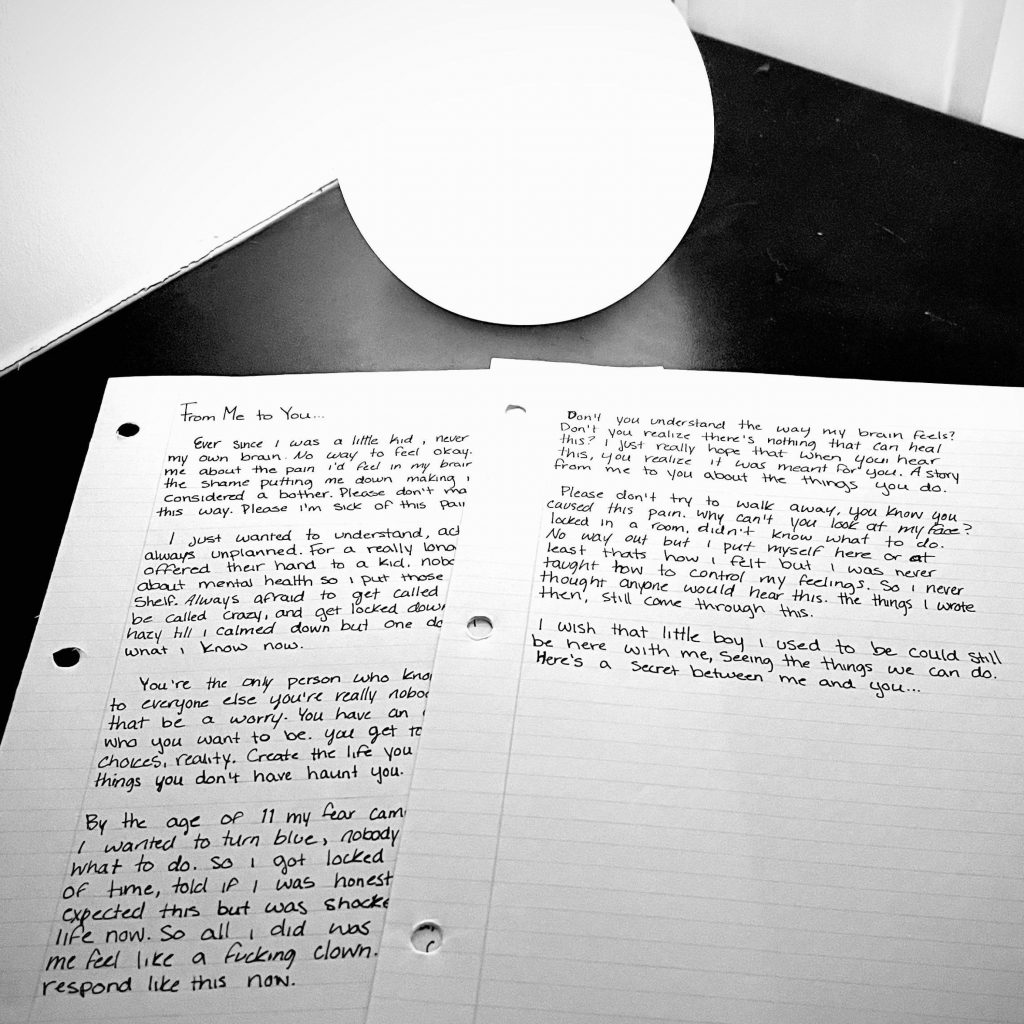 From Me to You...
Ever since I was a little kid, never
my own brain. No way to feel okay.
me about the pain i'd feel in my brain
the shame putting me down making i
considered a bother. Please don't ma
this way. Please I'm sick of this pain
I just wanted to understand, act
always unplanned. For a really long
offered their hand to a kid. nobo
about mental health so i put those
shelf. Always afraid to get called
be called crazy, and get locked down
hazy till i calmed down but one do
what i know now.
You're the only person who kno
to everyone else you're really nobod
that be a worry. You have an
who you want to be. you get to
choices, reality. Create the life you
things you don't have haunt you.
By the age of 11 my fear cam
I wanted to turn blue, nobody
what to do. So i got locked
of time, told if I was honest
expected this but was shocke
life now. So all i did was
me feel like a fucking clown.
respond like this now.
Don't you understand the way my brain feels?
Don't you realize there's nothing that can heal
this? I just really hope that when you hear
this, you realize it was meant for you. A story
from me to you about the things you do.
Please don't try to walk away, you know you
caused this pain. Why can't you look at my face?
locked in a room, didn't know what to do.
No way out but i put myself here or at
least thats how i felt but i was never
taught how to control my feelings. So i never
thought anyone would hear this. the things I wrote
then, still come through this.
I wish that little boy i used to be could still
be here with me, seeing the things we can do.
Here's a secret between me and you...